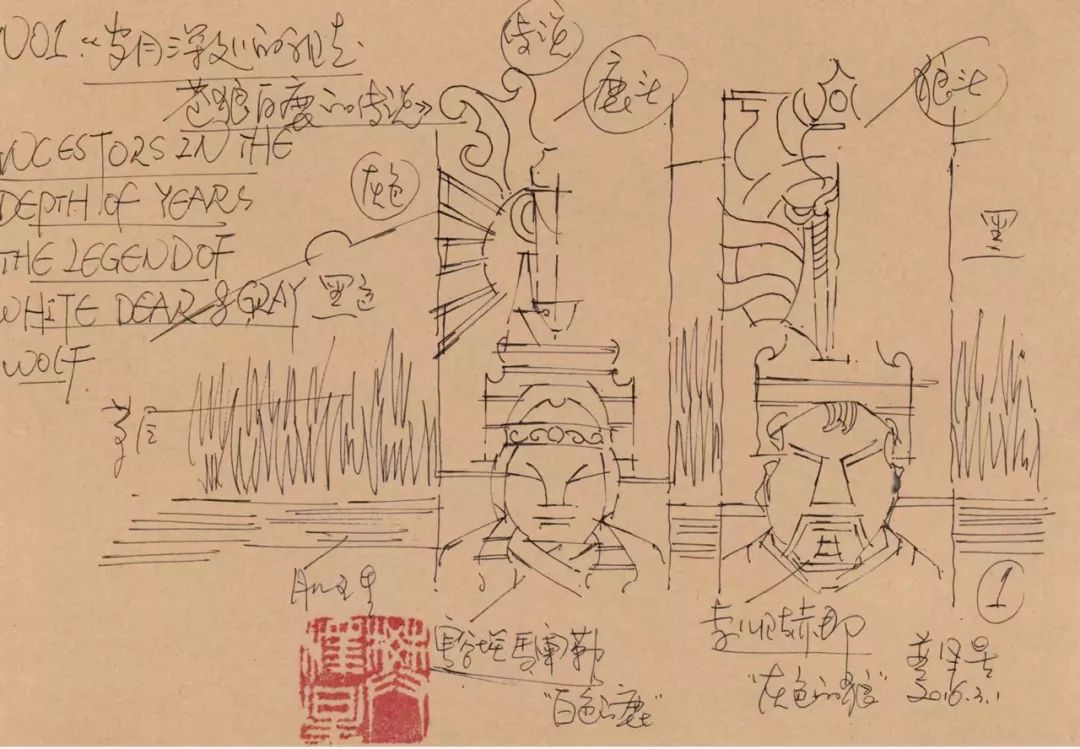 001.《岁月深处的祖先
苍狼白鹿的传说》
NCESTORS IN THE
DEPTH OF YEARS
THE LEGEND OF
WHITE DEAR & GRAY
WOLF
传说
鹿头
狼头
灰色
黑色
黑
豁埃馬闌勒
"白色的鹿"
孛儿帖赤那
"灰色的狼"
2016.3.1
1